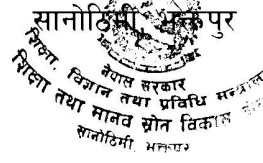 सानोठिमी, भक्तपुर
नेपाल सरकार
शिक्षा, विज्ञान तथा प्रविधि मन्त्रालय
शिक्षा तथा मानव स्रोत विकास
सानोठिमी, भक्तपुर